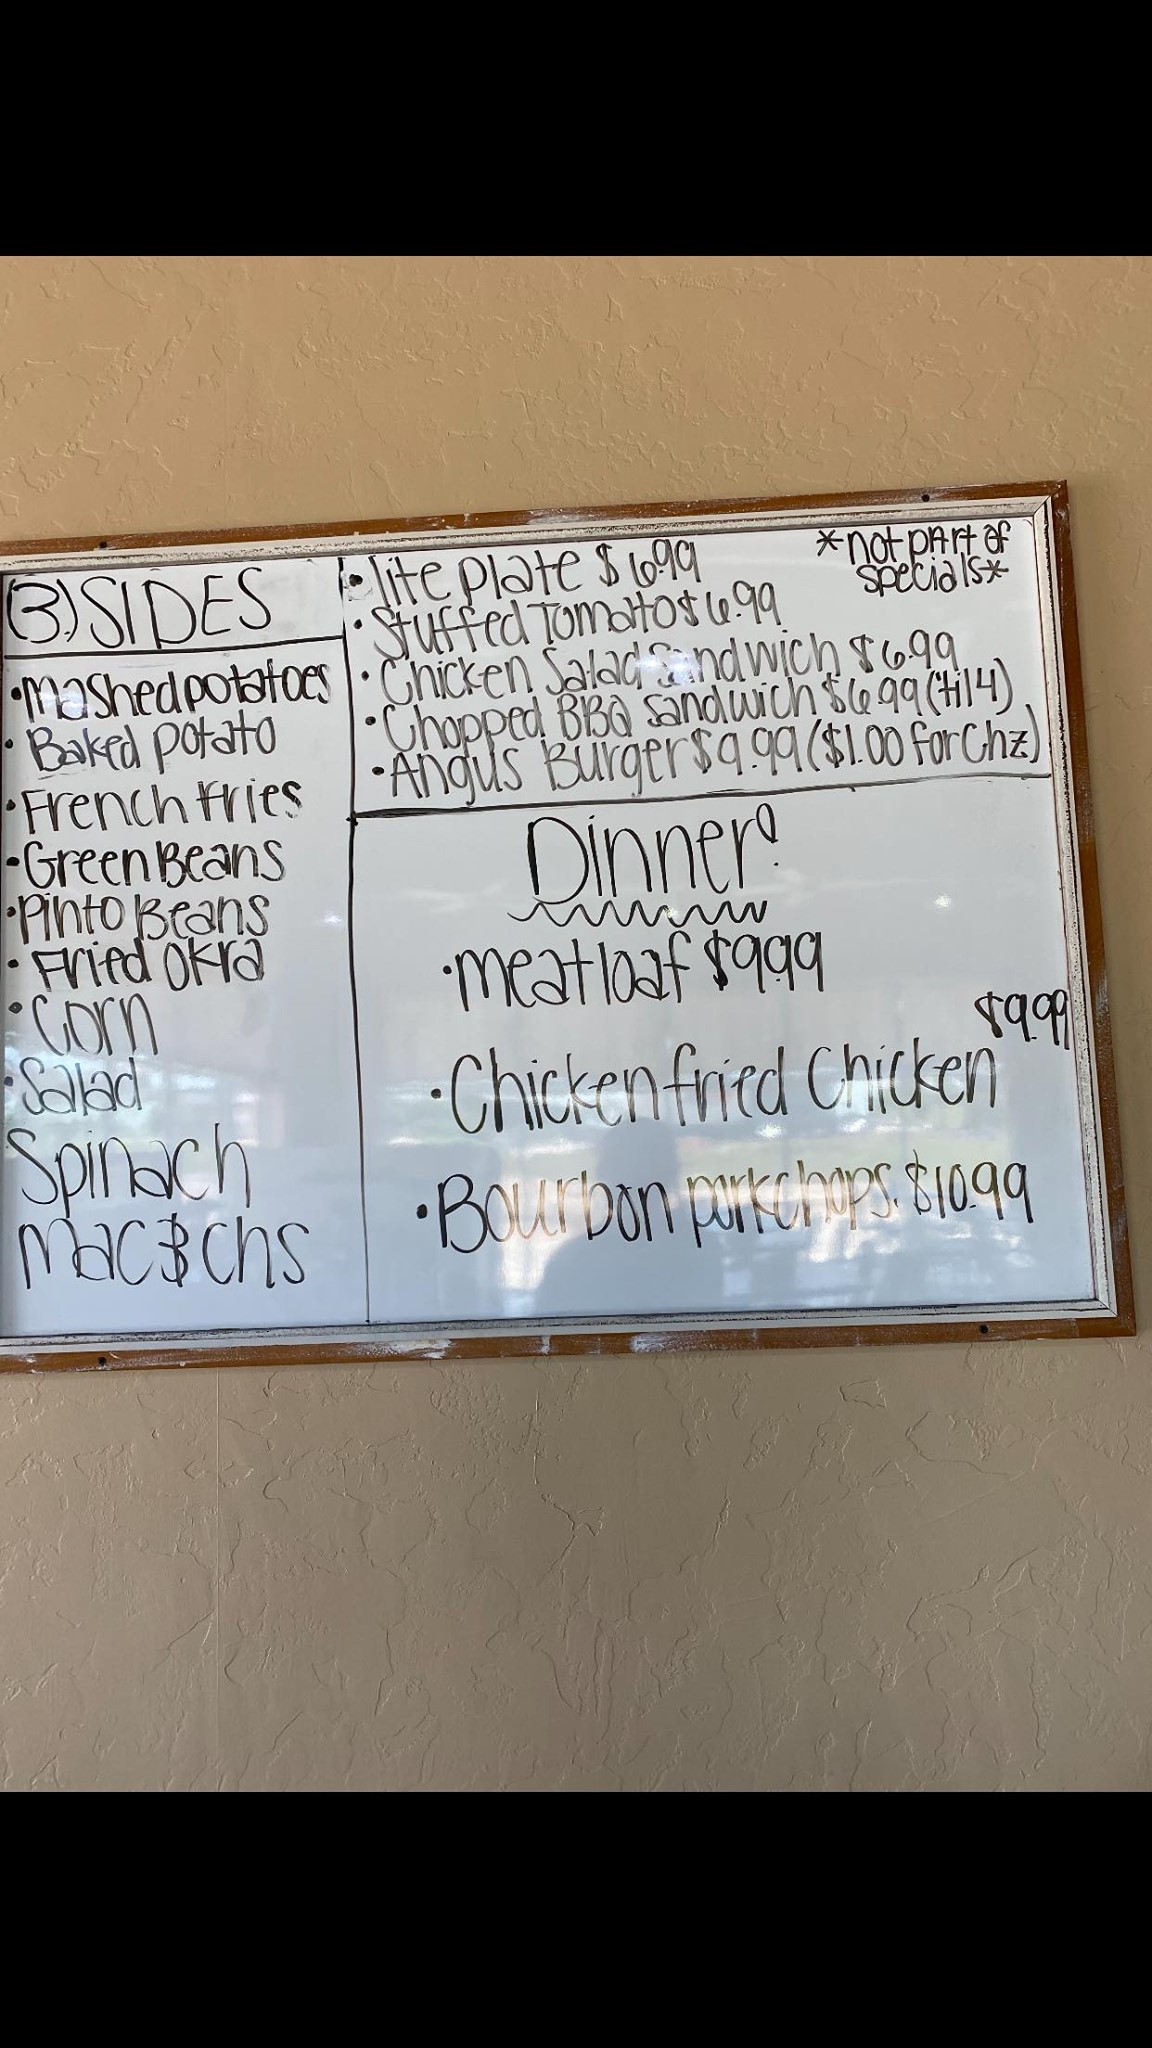 (3) SIDES
•Mashed potatoes
• Baked potato
•French fries
•Green Beans
•Pinto Beans
• Fried Okra
• Corn
•Salad
Spinach
Mac & chs
• lite plate $6.99
• Stuffed Tomato $6.99
• Chicken Salad Sandwich $6.99
• Chopped BBQ Sandwich $6.99 ('til 4)
•Angus Burger $9.99 ($1.00 for Chz)
*not part of
specials*
Dinner!
•meatloaf $9.99
$9.99
•Chicken fried Chicken
•Bourbon porkchops. $10.99